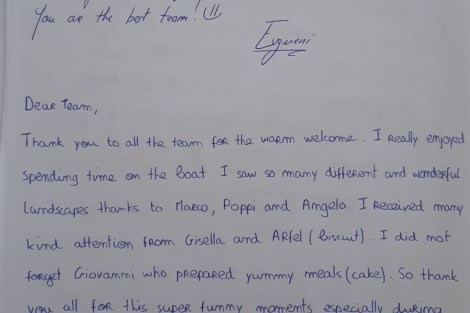 You are the best team! 
Evgueni
Dear Team,
Thank you to all the team for the warm welcome. I Really enjoyed
spending time on the boat. I saw so many different and wonderful
landscapes thanks to Marco, Poppi and Angelo. I Received many
kind attention from Gisella and (biscuit). I did not
forget Giovanni who prepared yummy meals (cake). So thank
you all for this super funny moments especially during